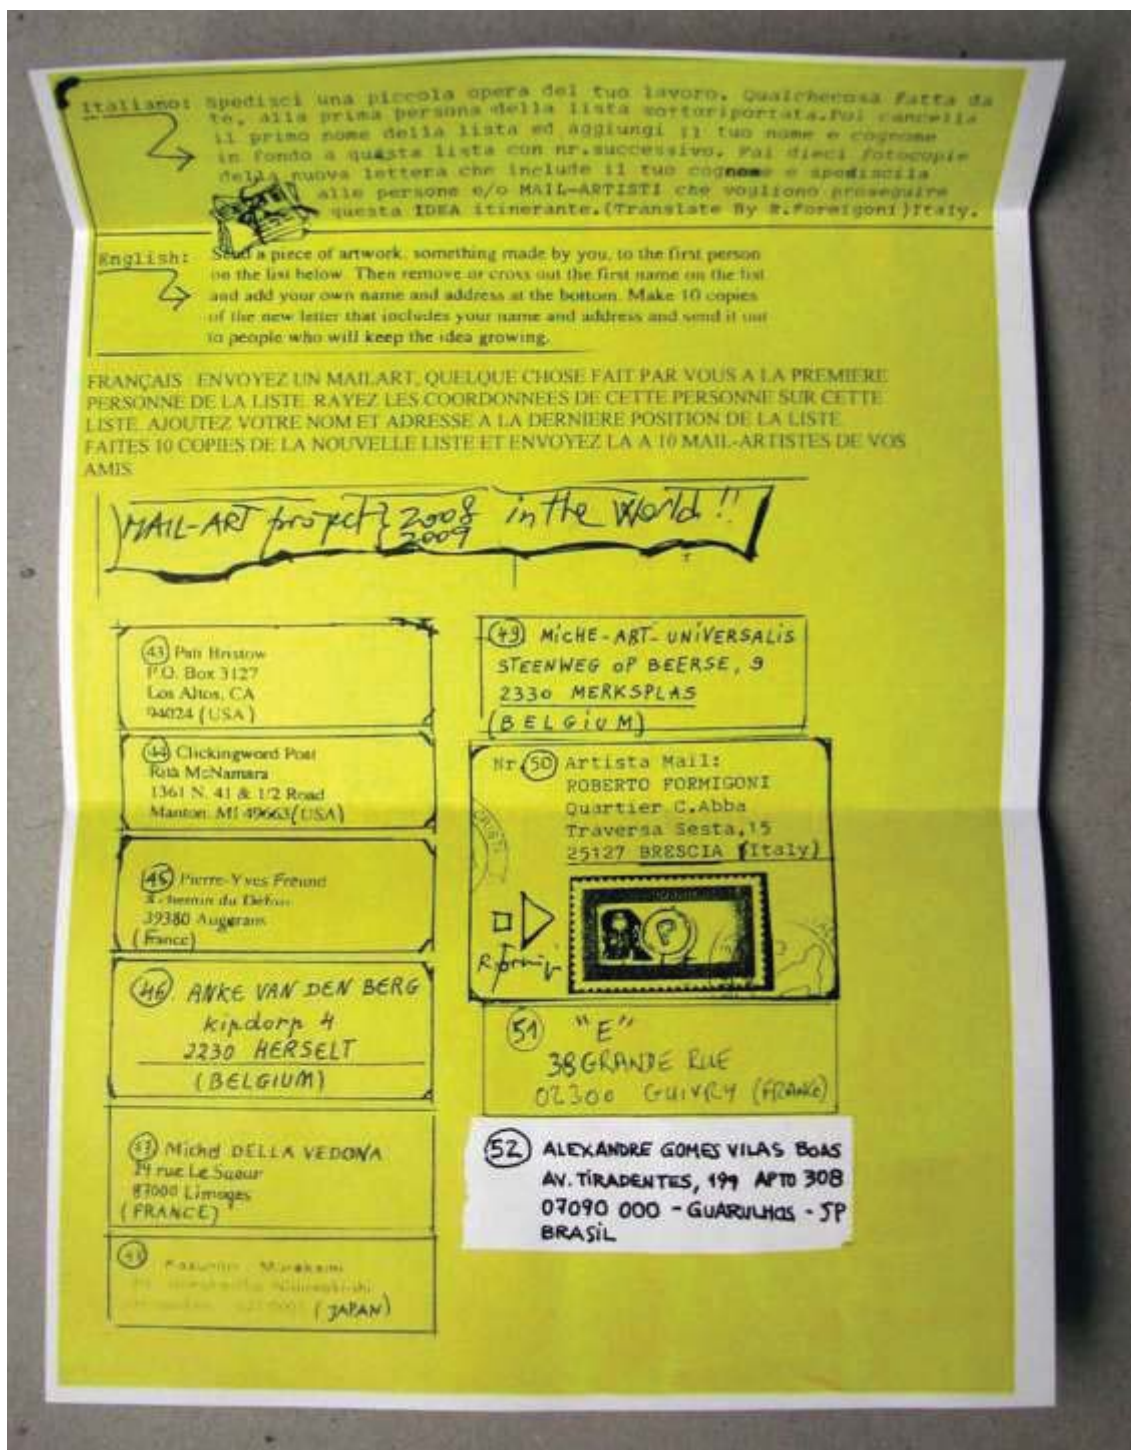 Italiano: Spedisci una piccola opera del tuo lavoro. Qualchecosa fatta da
te, alla prima persona della lista sottoriportata.Poi cancella
il primo nome della lista ed aggiungi il tuo nome e cognome
in fondo a questa lista con nr.successivo. Fai dieci fotocopie
della nuova lettera che include il tuo cognome e spediscila
alle persone e/o MAIL-ARTISTI che vogliono proseguire
questa IDEA itinerante.(Translate By R.Formigoni)Italy.
English: Send a piece of artwork, something made by you, to the first person
on the list below. Then remove or cross out the first name on the list
and add your own name and address at the bottom. Make 10 copies
of the new letter that includes your name and address and send it out
to people who will keep the idea growing.
FRANÇAIS : ENVOYEZ UN MAILART, QUELQUE CHOSE FAIT PAR VOUS A LA PREMIERE
PERSONNE DE LA LISTE. RAYEZ LES COORDONNEES DE CETTE PERSONNE SUR CETTE
LISTE. AJOUTEZ VOTRE NOM ET ADRESSE A LA DERNIERE POSITION DE LA LISTE.
FAITES 10 COPIES DE LA NOUVELLE LISTE ET ENVOYEZ LA A 10 MAIL-ARTISTES DE VOS
AMIS
MAIL-ART project 2008 in the World!!
2009
43 Patt Bristow
P.O. Box 3127
Los Altos, CA
94024 (USA)
44 Clickingword Post
Rita McNamara
1361 N. 41 & 1/2 Road
Manton, MI 49663 (USA)
45 Pierre-Yves Freund
chemin du
39380 Augerans
(France)
46 ANKE VAN DEN BERG
kipdorp 4
2230 HERSELT
(BELGIUM)
47 Michel DELLA VEDOVA
rue Le Sueur
87000 Limoges
(FRANCE)
48 Murakami
(JAPAN)
49 MICHE-ART-UNIVERSALIS
STEENWEG OP BEERSE, 9
2330 MERKSPLAS
(BELGIUM)
Nr. 50 Artista Mail:
ROBERTO FORMIGONI
Quartier C.Abba
Traversa Sesta,15
25127 BRESCIA (Italy)
P
51 "E"
38 GRANDE RUE
02300 GUIVRY (FRANCE)
52 ALEXANDRE GOMES VILAS BOAS
AV. TIRADENTES, 199 APTO 308
07090 000 - GUARULHOS - SP
BRASIL